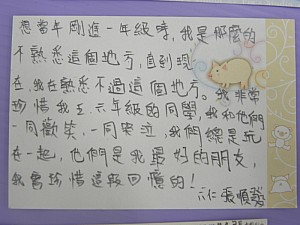 想當年剛進一年級時,我是那麼的
不熟悉這個地方,直到現
在,我在熟悉不過這個地方。我非常
珍惜我五、六年級的同學,我和他們
一同歡笑,一同哭泣,我們總是玩
在一起,他們是我最好的朋友,
我會珍惜這段回憶的!
六仁 順發